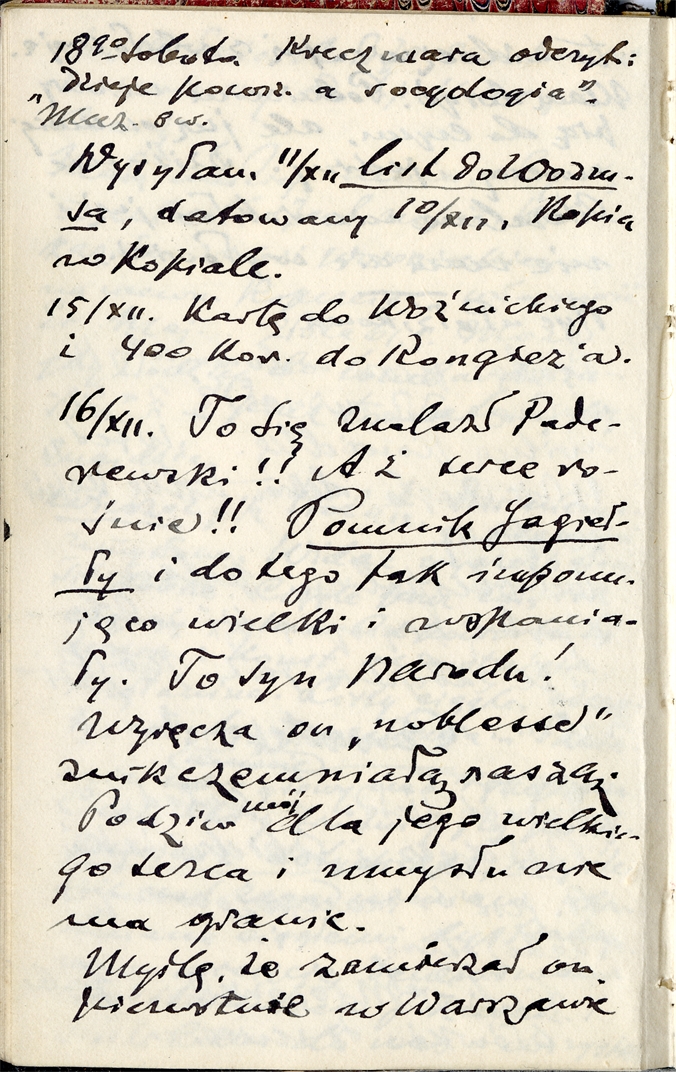 18go Sobota. Kreczmara odczyt:
"Dzieje powsz. a socyologia".
Muz. św.
Wysyłam 11/XII list do
sa, datowany 10/XII. Kopia
w Kopiale.
15/XII. Kartę do Woźnickiego
i 400 Kor. do
16/XII. To się znalazł Pade-
rewski!! Aż serce ro-
śnie!! Pomnik Jagieł-
ły i do tego tak imponu-
jąco wielki i wspania-
ły. To syn Narodu!
Uzięcza on "noblesse"
znikczemniałą naszą.
Podziw mój dla jego wielkie-
go serca i umysłu nie
ma granic.
Myślę, że zamierzał on
pierwotnie w Warszawie